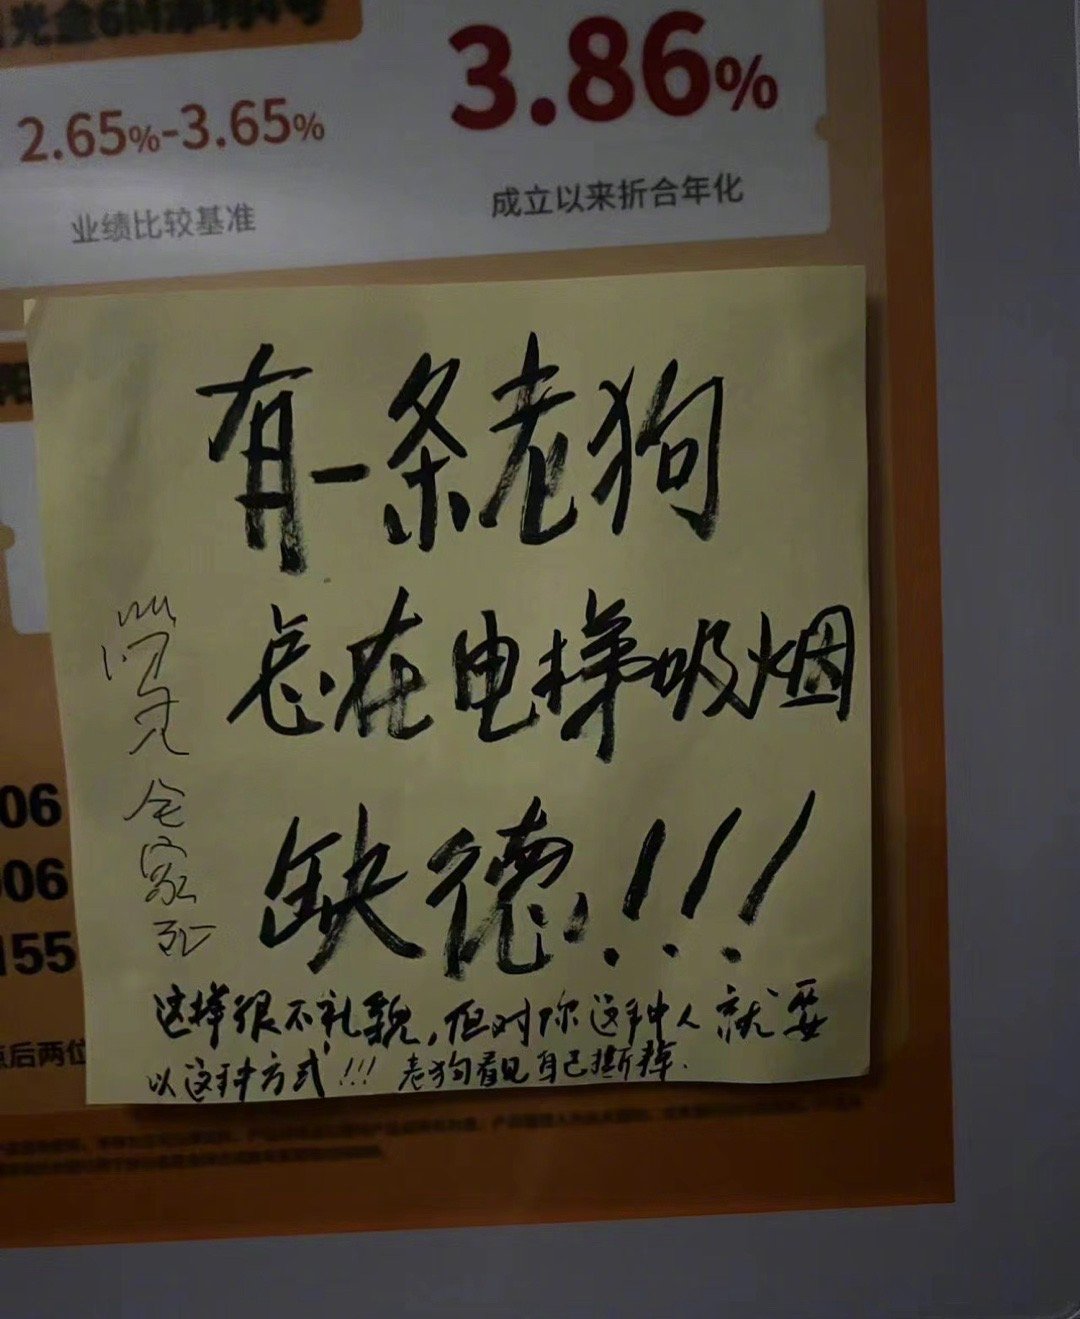 3.86%
2.65%-3.65%
业绩比较基准
成立以来折合年化
有一条老狗
总在电梯吸烟
缺德!!!
全家死
这样很不礼貌,但对你这种人就要
以这种方式!!! 老狗看见自己撕掉.
06
006
155
点后两位